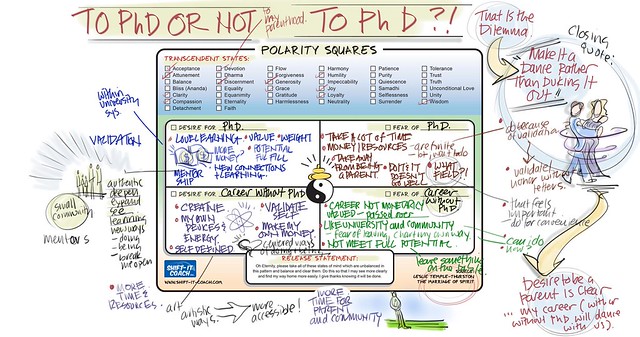 TO PhD OR NOT TO PhD?!
to my parenthood.
That Is the Dilemma.
closing quote:
"Make it a Dance Rather than Ducking It Out"
POLARITY SQUARES
TRANSCENDENT STATES:
Acceptance
Attunement
Balance
Bliss (Ananda)
Clarity
Compassion
Detachment
Devotion
Dharma
Discernment
Equality
Equanimity
Eternality
Faith
Flow
Forgiveness
Generosity
Grace
Gratitude
Harmlessness
Harmony
Humility
Impeccability
Joy
Loyalty
Neutrality
Patience
Purity
Quiescence
Samadhi
Selflessness
Serenity
Surrender
Tolerance
Trust
Truth
Unconditional Love
Unity
Wisdom
within university sys.
VALIDATION
DESIRE FOR PhD.
LOVE LEARNING
VALUE WEIGHT
MORE MONEY
POTENTIAL FULFILL
MENTORSHIP
NEW CONNECTIONS + LEARNING
FEAR OF PhD.
TAKE A LOT OF TIME
MONEY/RESOURCES
TAKE AWAY FROM BEING A PARENT
DO IT & IT DOESN'T GO WELL
WHAT FIELD?!
DESIRE FOR Career without PhD
CREATIVE
MY OWN DEVICES & ENERGY
SELF DEFINED
VALIDATE SELF
MAKE MY OWN MONEY
FEAR OF career without PhD.
CAREER NOT MONETARILY VALUED - passed over
LIKE UNIVERSITY AND COMMUNITY
NOT MEET FULL POTENTIAL
RELEASE STATEMENT:
Oh Eternity, please take all of these states of mind which are unbalanced in this pattern and balance and clear them. Do this so that I may see more clearly and find my way home more easily. I give thanks knowing it will be done.
SHIFT-IT-COACH
WWW.SHIFT-IT-COACH.COM
LESLIE TEMPLE-THURSTON
THE MARRIAGE OF SPIRIT
small community
mentors
authentic
deepen
expand
see
new ways
- doing
- being
break me open
MORE TIME & RESOURCES
art
artistic ways.
more accessible!
MORE TIME FOR PARENT and COMMUNITY
leave something on the table
do because of validation
validate honor with letters.
that feels important
do for convenience
Desire to be a parent is clear
... my career (with or without PhD will dance with us).